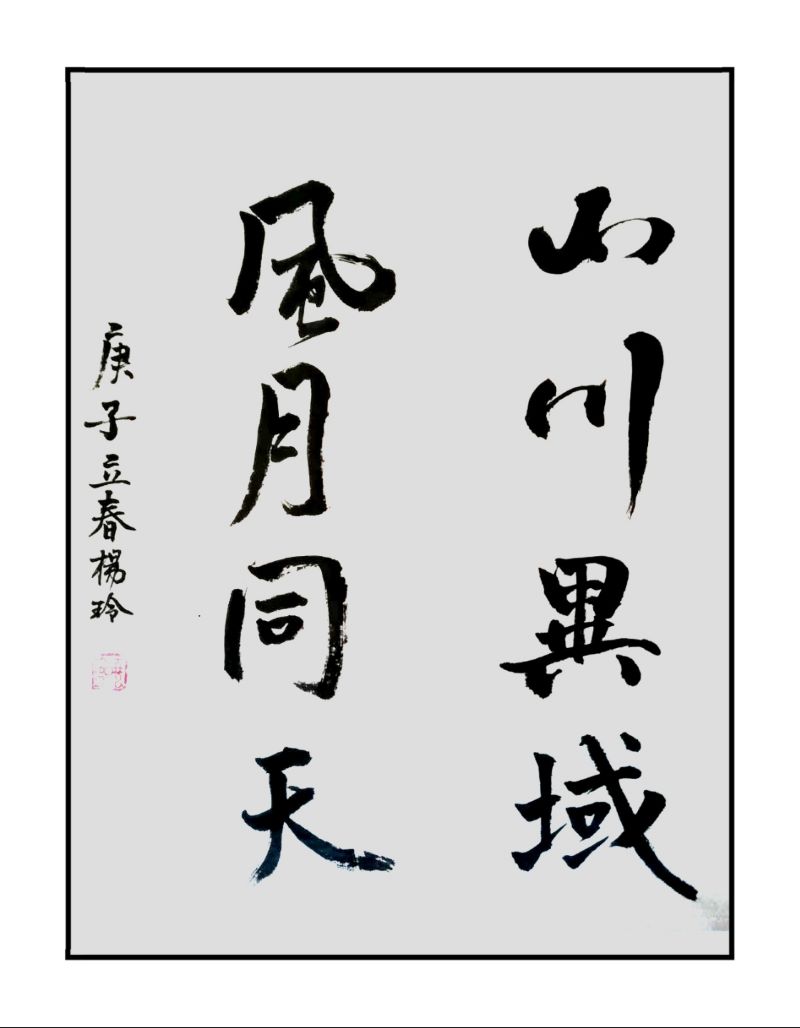 山川異域
風月同天
庚子立春楊玲